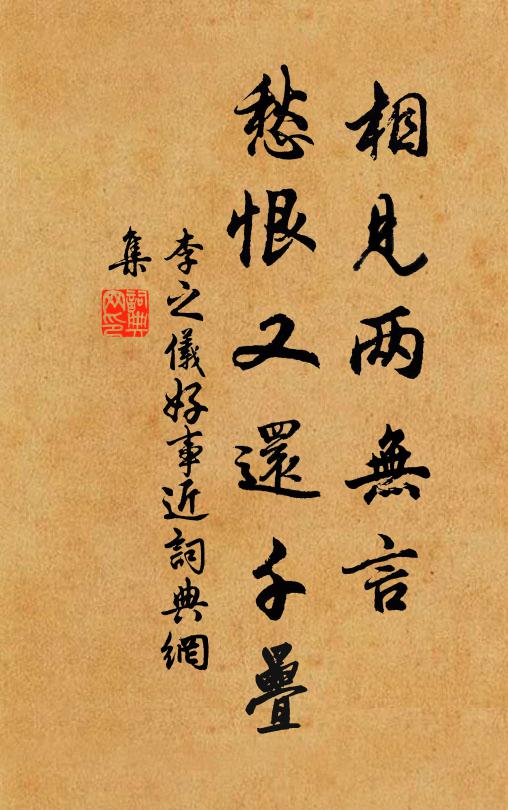 相見两無言
愁恨又還千疊
李之儀好事近詞典網
集
詞典網印